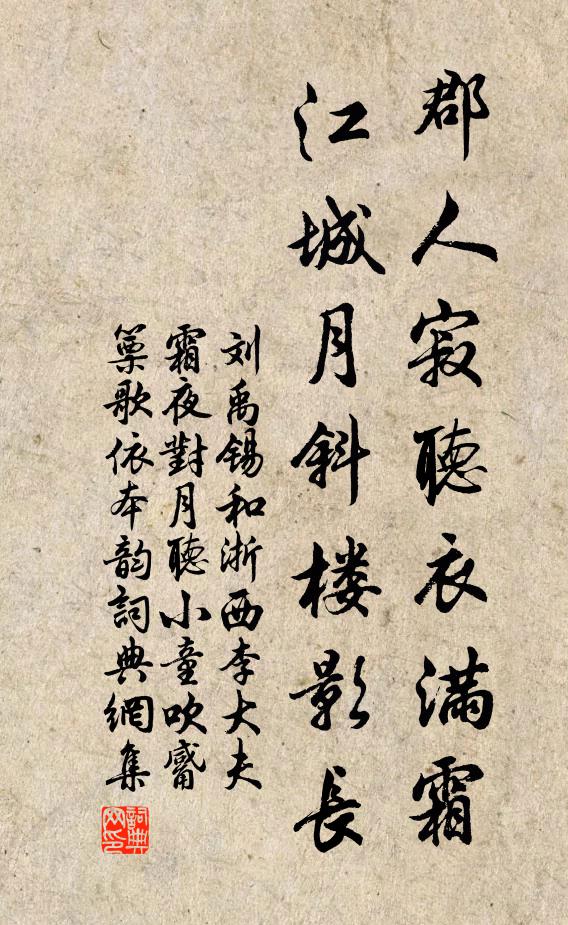 郡人寂聽衣滿霜
江城月斜楼影長
刘禹锡和浙西李大夫
霜夜對月聽小童吹觱
篥歌依本韵詞典網集
詞典
网印